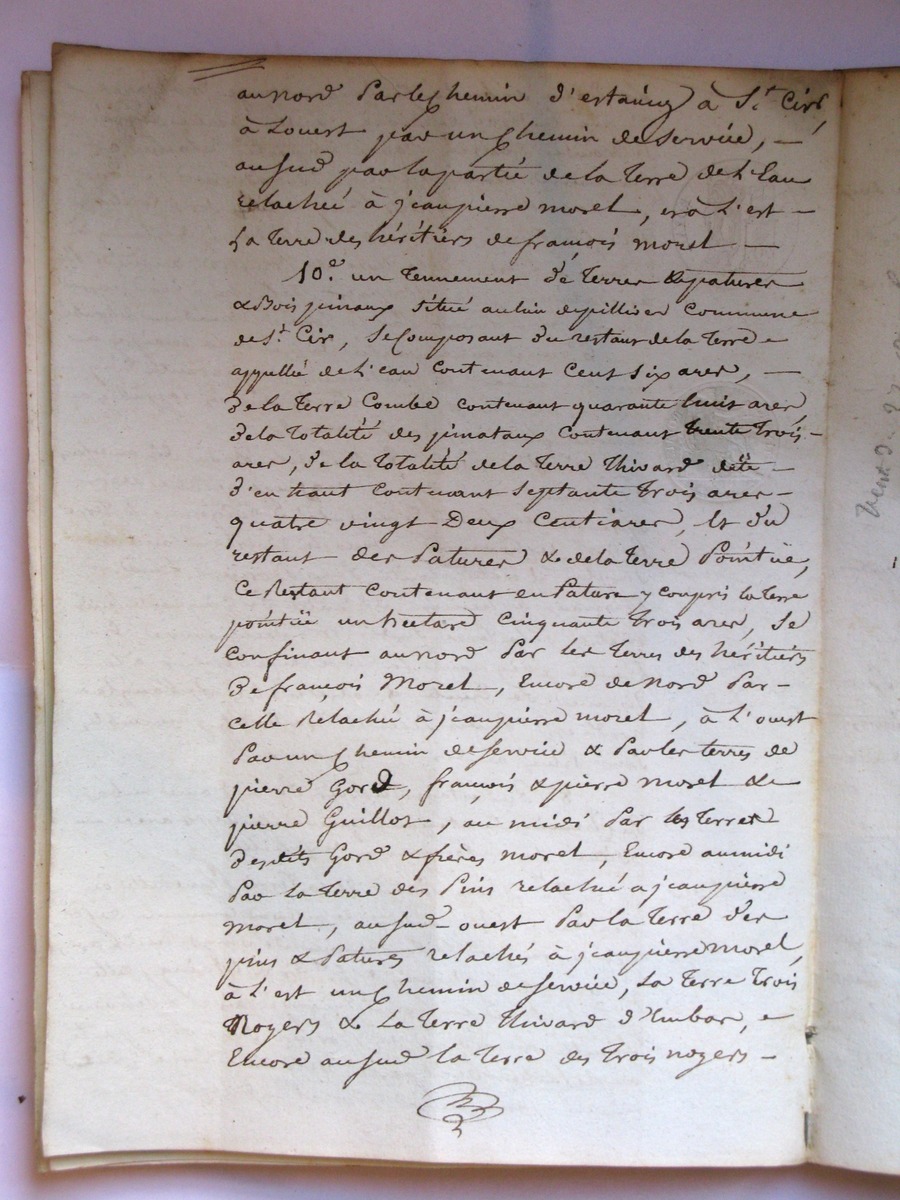 au nord par le Chemin d'estaing à St Cirs,
à Louest par un Chemin de service, —
au sud par la partie de la Terre de L'Eau
relachéé à jean pierre moret, et à L'est —
La Terre des héritiers de françois moret —
10e un Tennement de Terres & patures
& Bois pinaux situé au lieu de pillier Commune
de St Cir, se Composant du restant de la Terre
appellée de L'eau Contenant Cent six ares, —
de la Terre Combe contenant quarante huit ares
de la Totalité des pinataux contenant trente Trois —
ares, de la Totalité de la Terre Thivard ditte —
d'en haut contenant septante trois ares —
quatre vingt Deux Centiares, et du
restant des Patures & de la Terre Pointüe,
Ce Restant Contenant en Pature y compris la Terre
pointüe un hectare Cinquante trois ares, se
confinant au nord Par les Terres des héritiers
de françois Moret, Encore de nord Par —
celle Relachée à jean pierre moret, à L'ouest
Par un Chemin de service & Par les terres de
pierre Gord, françois & pierre moret & de
pierre Guillot, au midi Par les Terres
desdits Gord & frères moret, Encore au midi
Par la Terre des Pins relachée a jean pierre
moret, au sud-ouest Par la Terre des
pins & Patures relachés à jean pierre moret,
à L'est un Chemin de service, La Terre Trois
Noyers & La Terre Thivard d'Embas,
Encore au sud la Terre des Trois noyers —